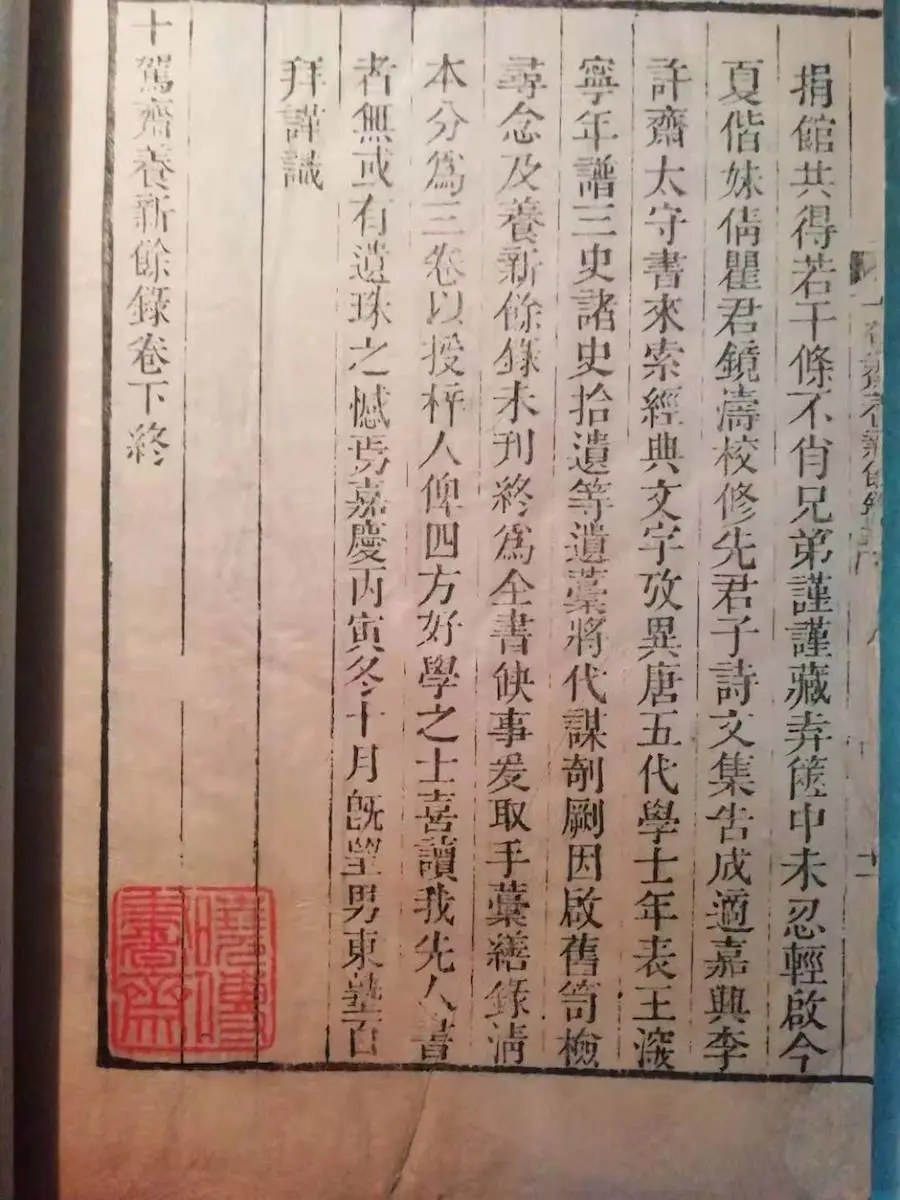 捐館共得若干條不肖兄弟謹謹藏弆篋中未忍輕啟今
夏偕妹倩瞿君鏡濤校修先君子詩文集告成適嘉興李
許齋太守書來索經典文字攷異唐五代學士年表王深
寧年譜三史諸史拾遺等遺藁將代謀剞劂因啟舊笥檢
尋念及養新餘錄未刊終爲全書缺事爰取手藁繕錄淸
本分爲三卷以授梓人俾四方好學之士喜讀我先人書
者無或有遺珠之憾焉嘉慶丙寅冬十月旣望男東塾百
拜謹識
十駕齋養新餘錄卷下終